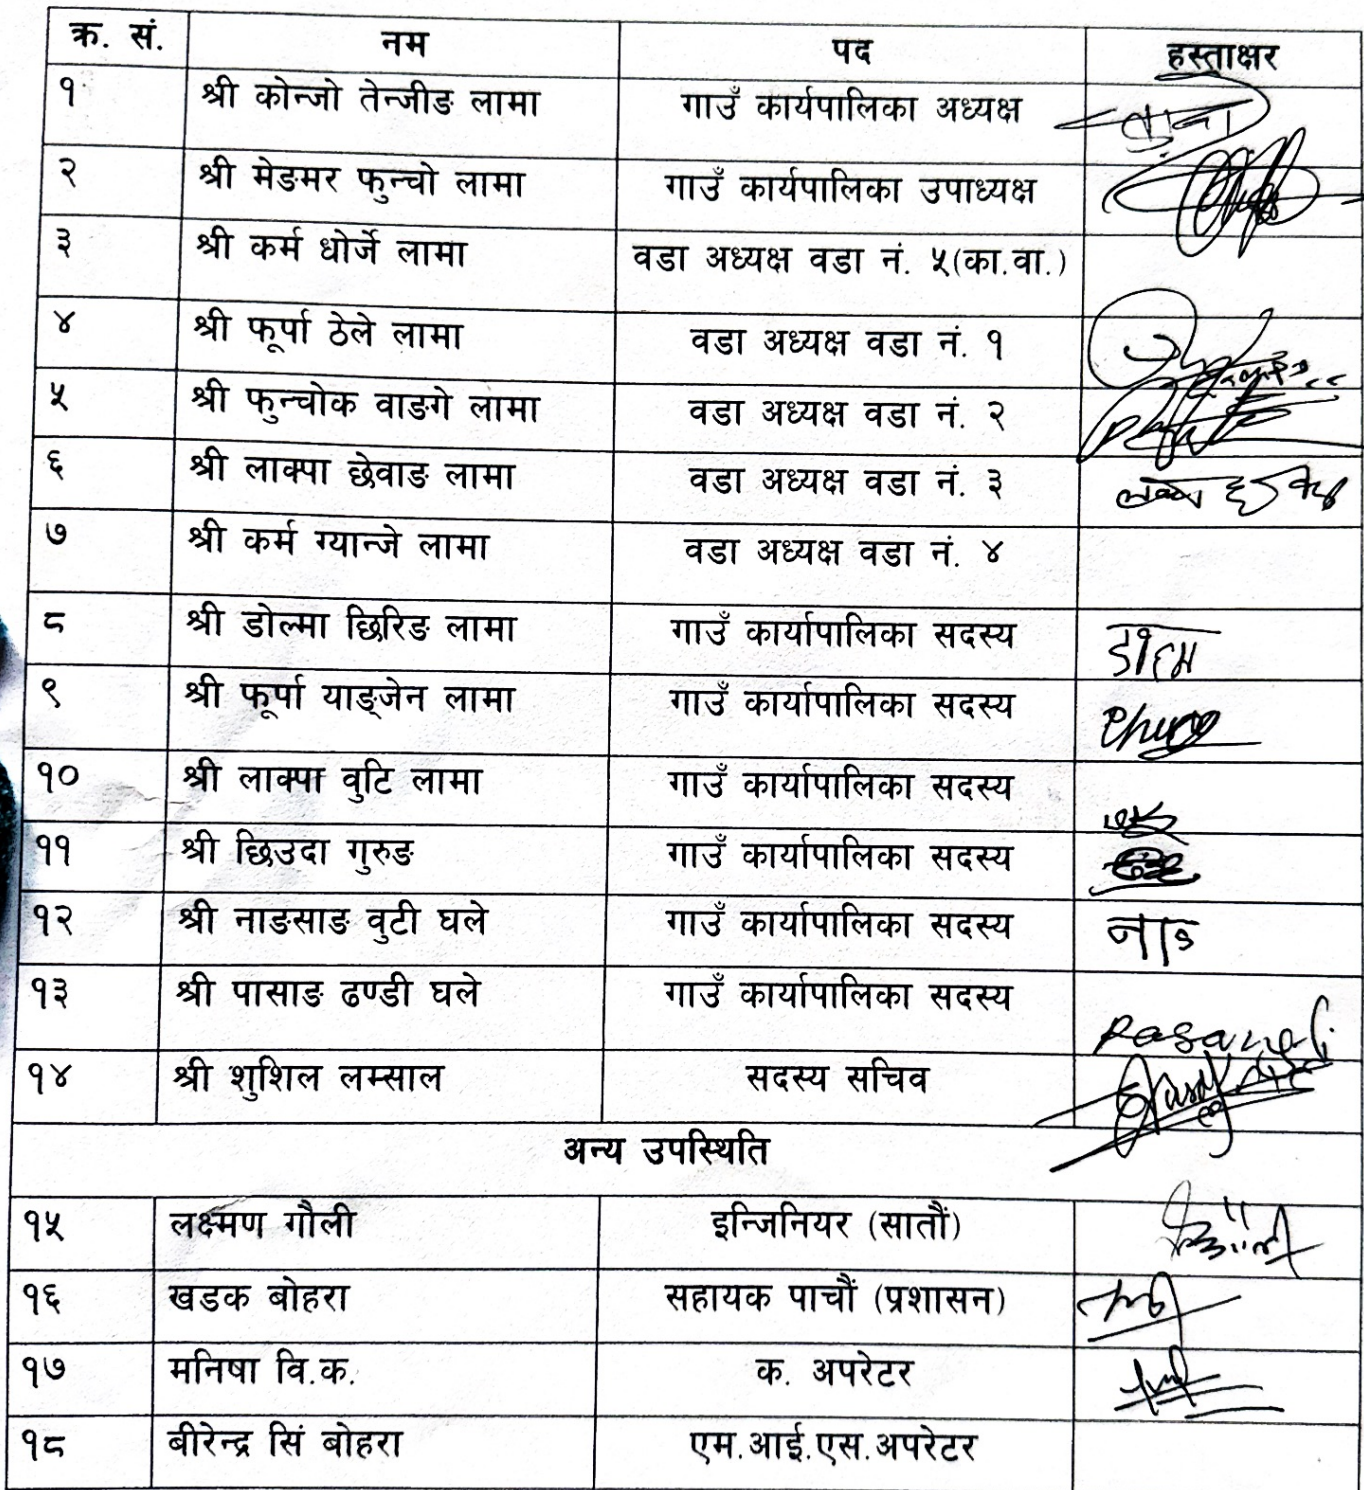 क्र. सं. नम पद हस्ताक्षर
१ श्री कोन्जो तेन्जीङ लामा गाउँ कार्यपालिका अध्यक्ष
२ श्री मेङमर फुन्चो लामा गाउँ कार्यपालिका उपाध्यक्ष
३ श्री कर्म धोर्जे लामा वडा अध्यक्ष वडा नं. ५(का.वा.)
४ श्री फूर्पा ठेले लामा वडा अध्यक्ष वडा नं. १
५ श्री फुन्चोक वाङगे लामा वडा अध्यक्ष वडा नं. २
६ श्री लाक्पा छेवाङ लामा वडा अध्यक्ष वडा नं. ३
७ श्री कर्म ग्यान्जे लामा वडा अध्यक्ष वडा नं. ४
८ श्री डोल्मा छिरिङ लामा गाउँ कार्यापालिका सदस्य
९ श्री फूर्पा याङ्जेन लामा गाउँ कार्यापालिका सदस्य
१० श्री लाक्पा वुटि लामा गाउँ कार्यापालिका सदस्य
११ श्री छिउदा गुरुङ गाउँ कार्यापालिका सदस्य
१२ श्री नाङसाङ वुटी घले गाउँ कार्यापालिका सदस्य नाङ
१३ श्री पासाङ ढण्डी घले गाउँ कार्यापालिका सदस्य
१४ श्री शुशिल लम्साल सदस्य सचिव
अन्य उपस्थिति
१५ लक्ष्मण गौली इन्जिनियर (सातौं)
१६ खडक बोहरा सहायक पाचौं (प्रशासन)
१७ मनिषा वि.क. क. अपरेटर
१८ बीरेन्द्र सिं बोहरा एम.आई.एस.अपरेटर